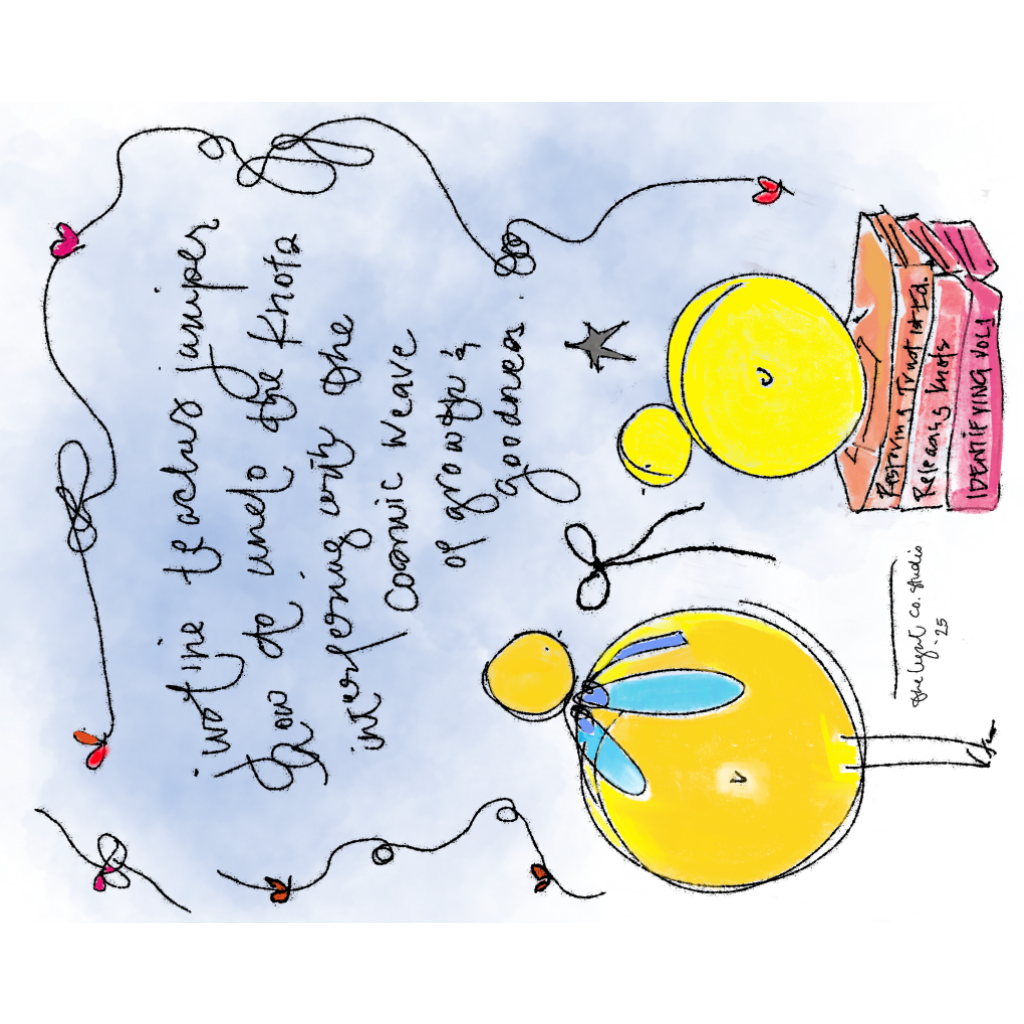 teaches juniper
how to undo the knots
interfering with the
cosmic weave
of growth &
goodness.
Restoring Trust 1st Ed.
Releasing Knots
IDENTIFYING VOL 1
the co. studio
'25